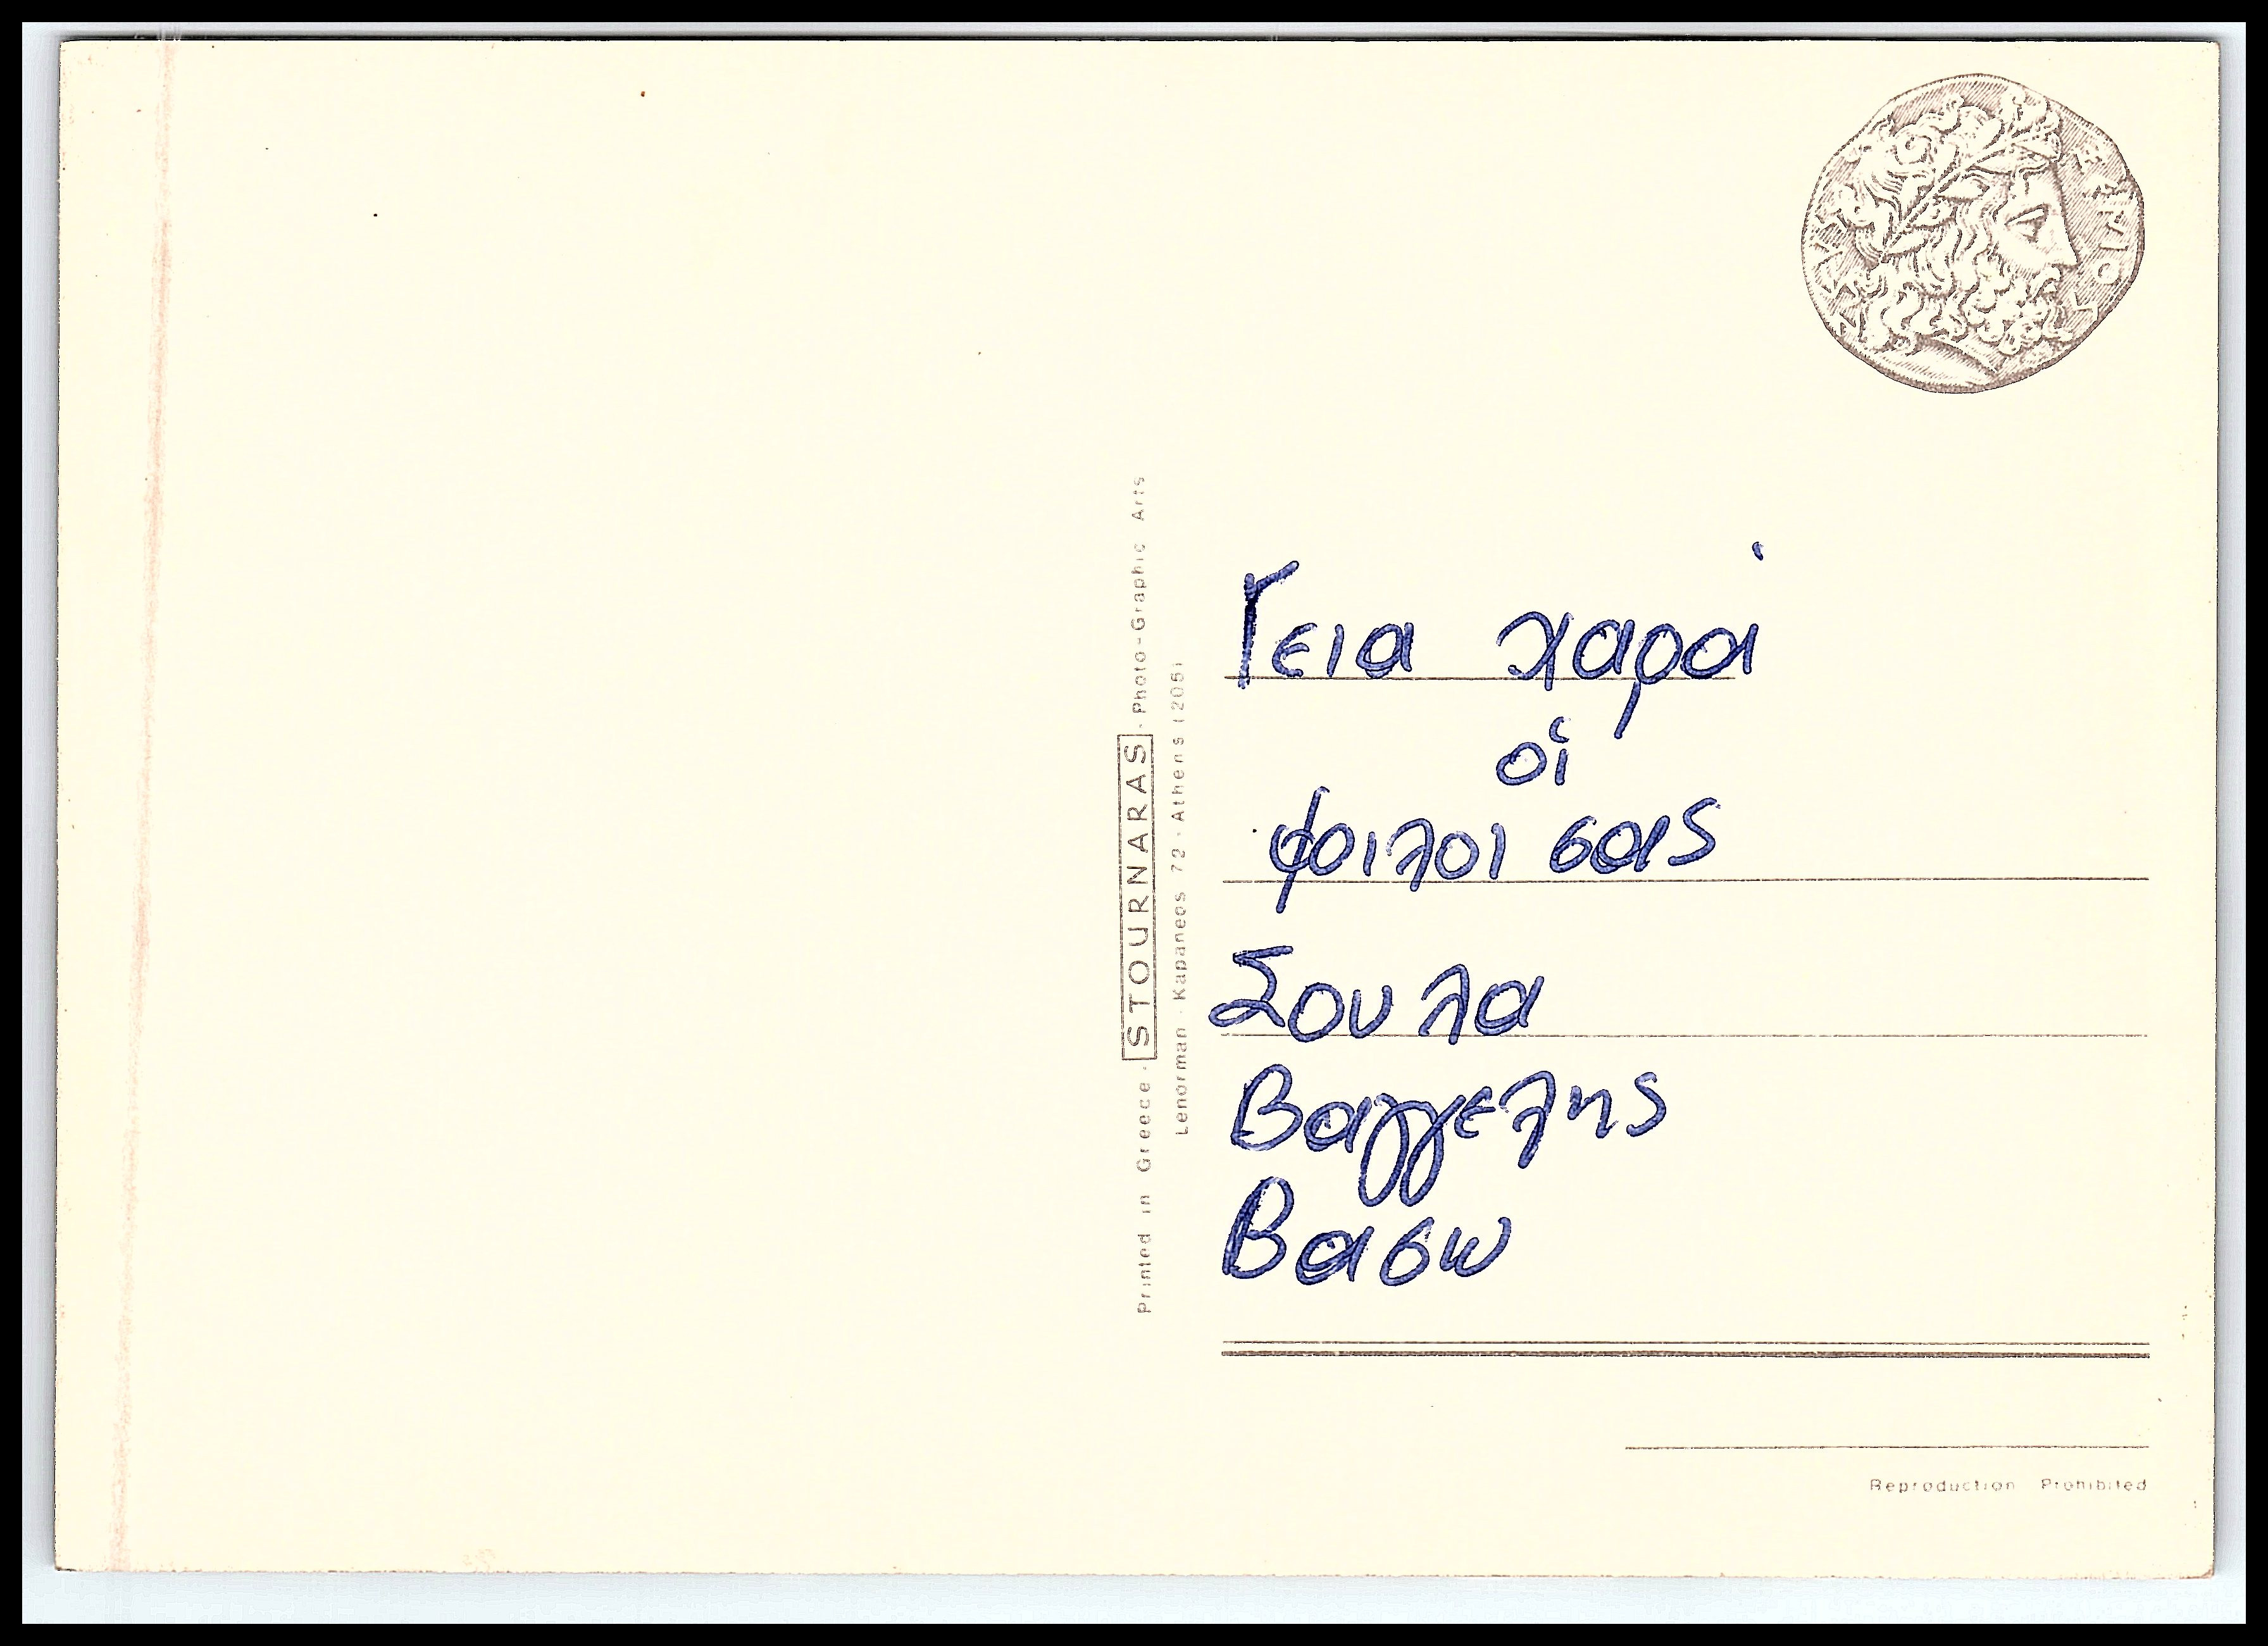 Printed in Greece · STOURNARAS · Photo-Graphic Arts
Lenorman · Kapaneos 72 · Athens (205)
Γεια χαρά
οἱ
φοιλοι σας
Σουλα
Βαγγελης
Βασω
Reproduction Prohibited